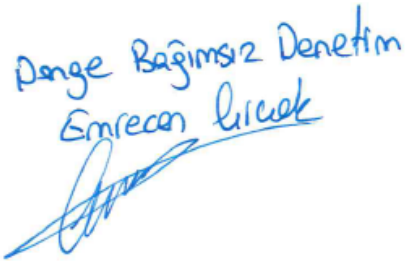 Denge Bağımsız Denetim
Emrecan